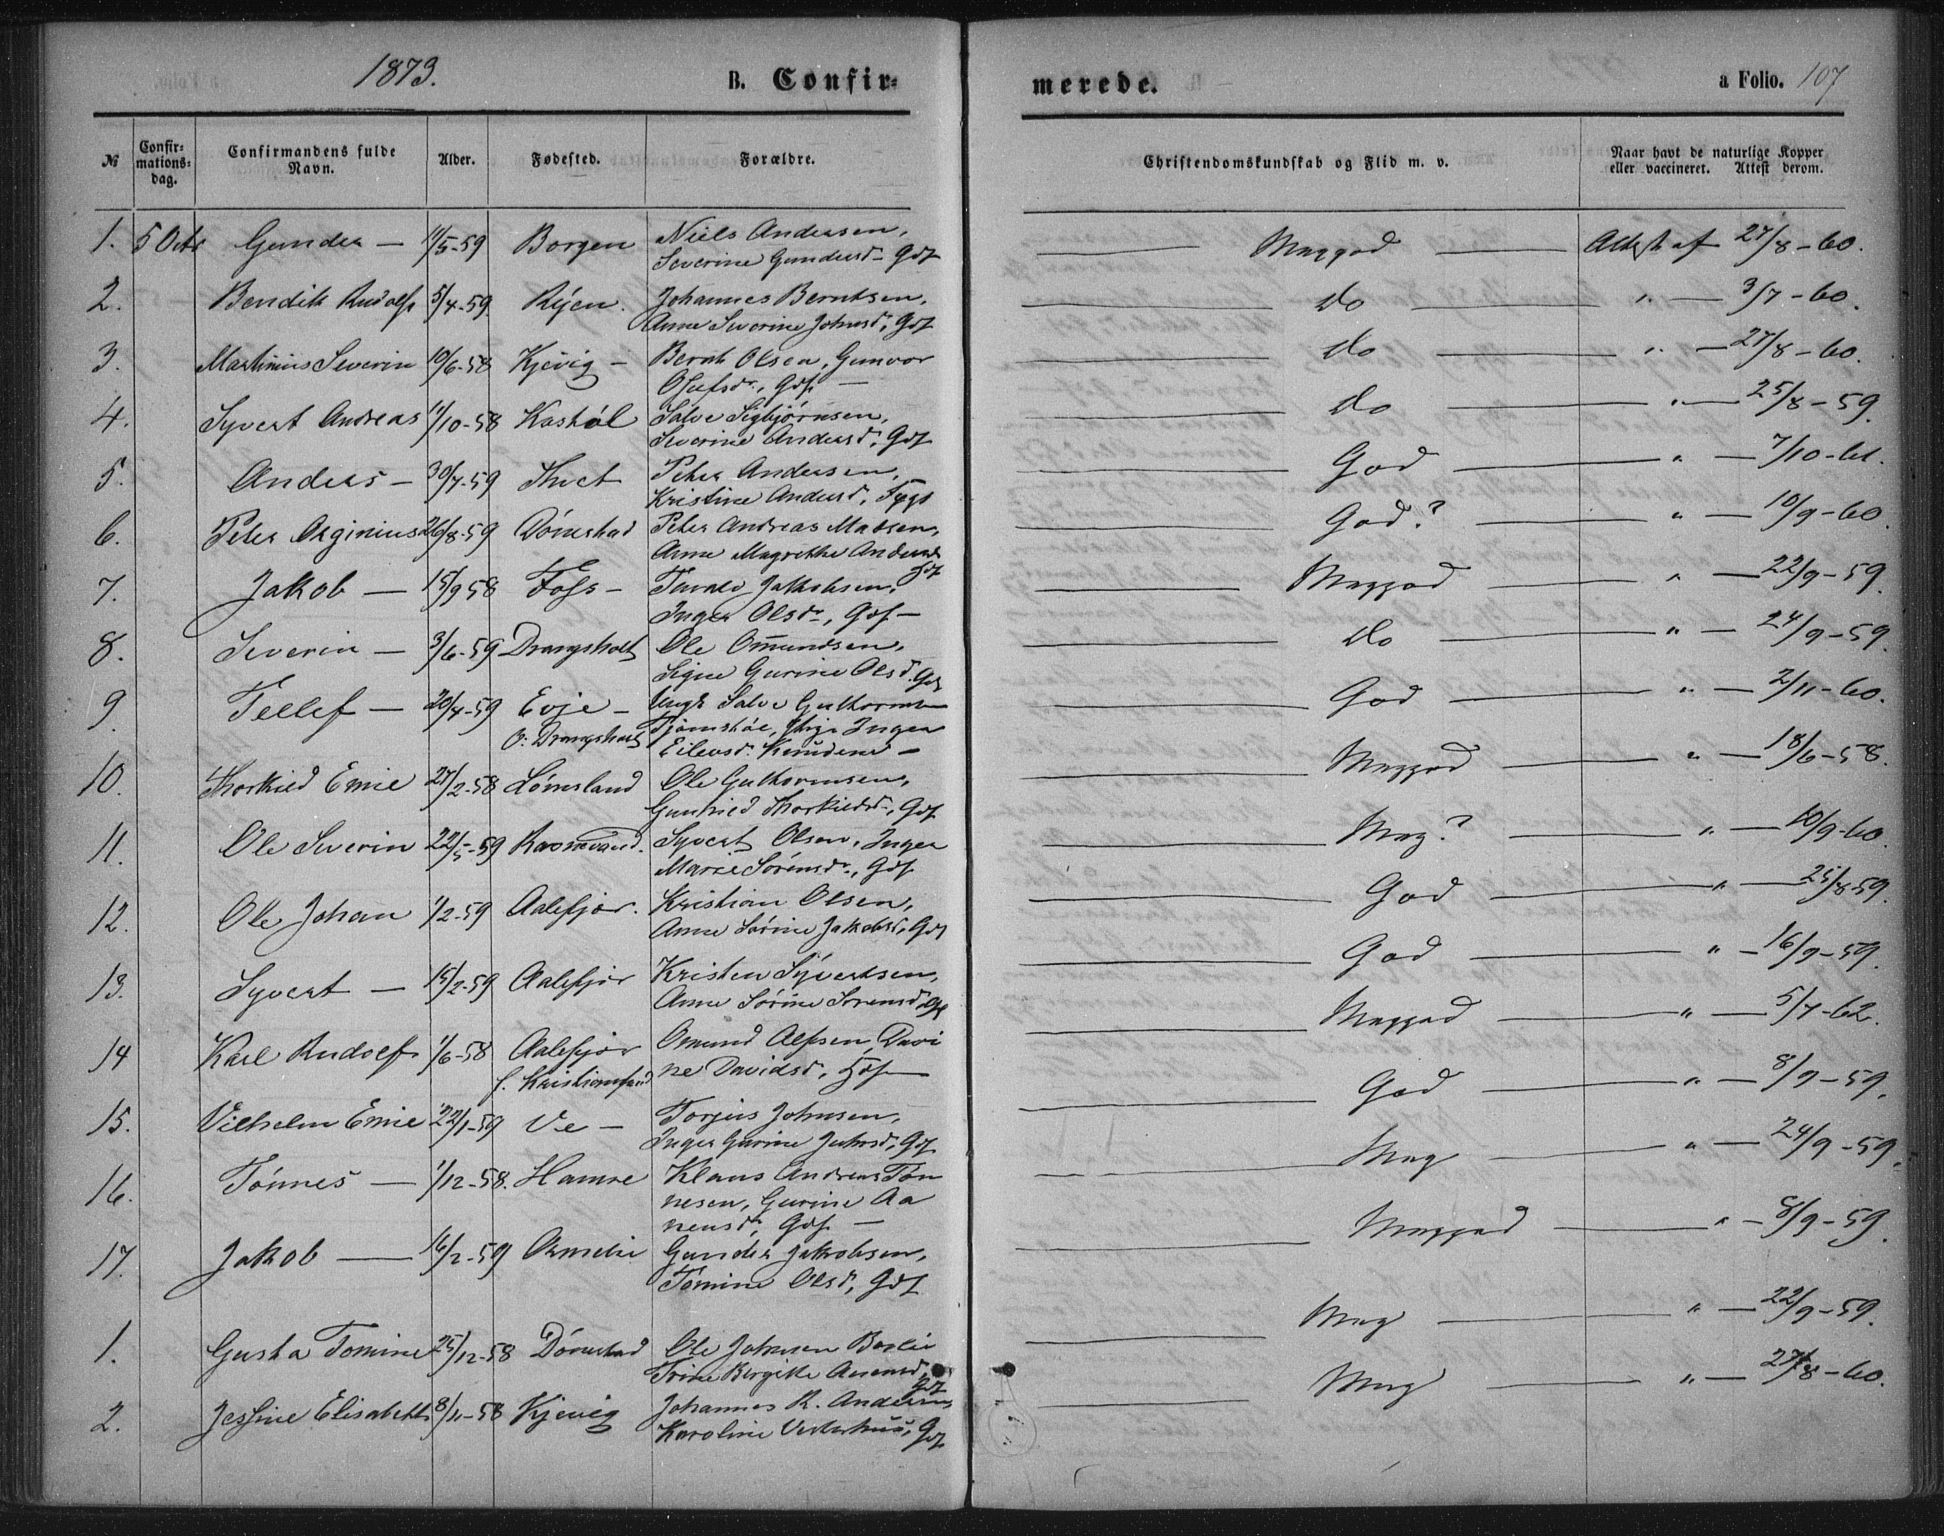 1873.
B. Confir=
merede.
a Folio. 107
№
Confir=
mations=
dag.
Confirmandens fulde
Navn.
Alder.
Fødested.
Forældre.
Christendomskundskab og Flid m. v.
Naar havt de naturlige Kopper
eller vaccineret. Attest derom.
1. 5 Octr Gunder — 11/5-59 Borgen Niels Andersen,
Severine Gundersd. Gdf
Megod Attest af 27/8-60.
2. Bendik Rudolf 5/4-59 Ryen. Johannes Berntsen,
Anne Severine Johnsd., Gdf
do " 3/7-60.
3. Martinius Severin 10/6-58 Kjevig — Bernt Olsen, Gunvor
Olufsd., Gdf. —
do " 27/8-60.
4. Syvert Andreas 11/10-58 Salve Sigbjørnsen,
Severine Andersd. Gdf
do " 25/8-59.
5. Anders — 30/7-59 Peter Andersen,
Kristine Andersd.
God " 7/10-61.
6. Peter 26/8-59 Dønestad Peter Andreas Madsen,
Anne Magrethe Andersd
Gdf
God? " 10/9-60.
7. Jakob — 15/9 58 Foss — Jakobsen,
Inger Olsdr., Gdf —
Megod " 22/9-59.
8. Severin — 3/6-59 Drangsholt Ole Omundsen,
Signe Gurine Olsd. Gdf
do " 24/9-59.
9. Tellef — 20/4-59 Evje — Ungk Salve Guthorms
o: Drangsholt Inger
Eilevsd. —
God " 2/11-60.
10. Thorkild Emil 27/2-58 Lømsland Ole Guthormsen,
Gunhild Thorkildsd., Gdf
Megod " 18/6-58.
11. Ole Severin 22/5-59 Syvert Olsen, Inger
Marie Sørensdr., Gdf
Meg? " 10/9-60.
12. Ole Johan 1/2-59 Aalefjær. Kristian Olsen,
Anne Sørine Jakobsd., Gdf
God " 25/8-59.
13. Syvert — 15/2-59 Aalefjær Kristen Syvertsen,
Anne Sørine Sørensd. Gdf
God " 16/9-59.
14 Karl Rudolf 1/6-58 Aalefjær Omund Alfsen, Davi
f. Kristiansand ne Davidsd., Gdf —
Megod " 5/7-62.
15. Vilhelm Emil 22/1-59 Ve — Torjus Johnsen,
Inger Gurine Johnsd., Gdf
God " 8/9-59.
16. Tønnes — 1/12-58. Hamre Klaus Andreas Tøn
nesen, Gurine Aa
nensdr, Gdf —
Meg " 24/9-59.
17. Jakob — 16/2-59 Gunder Jakobsen,
Tomine Olsd., Gdf
Megod " 8/9-59.
1. Gusta Tomine 25/12-58 Dønestad Ole Johnsen
Trine Birgitte Aanensd,
Gdf
Meg " 22/9-59.
2. Jessine Elisabeth 8/11-58 Kjevig Johannes R. Andersen,
Karoline Vesterhus, Gdf
Meg " 27/8-60.